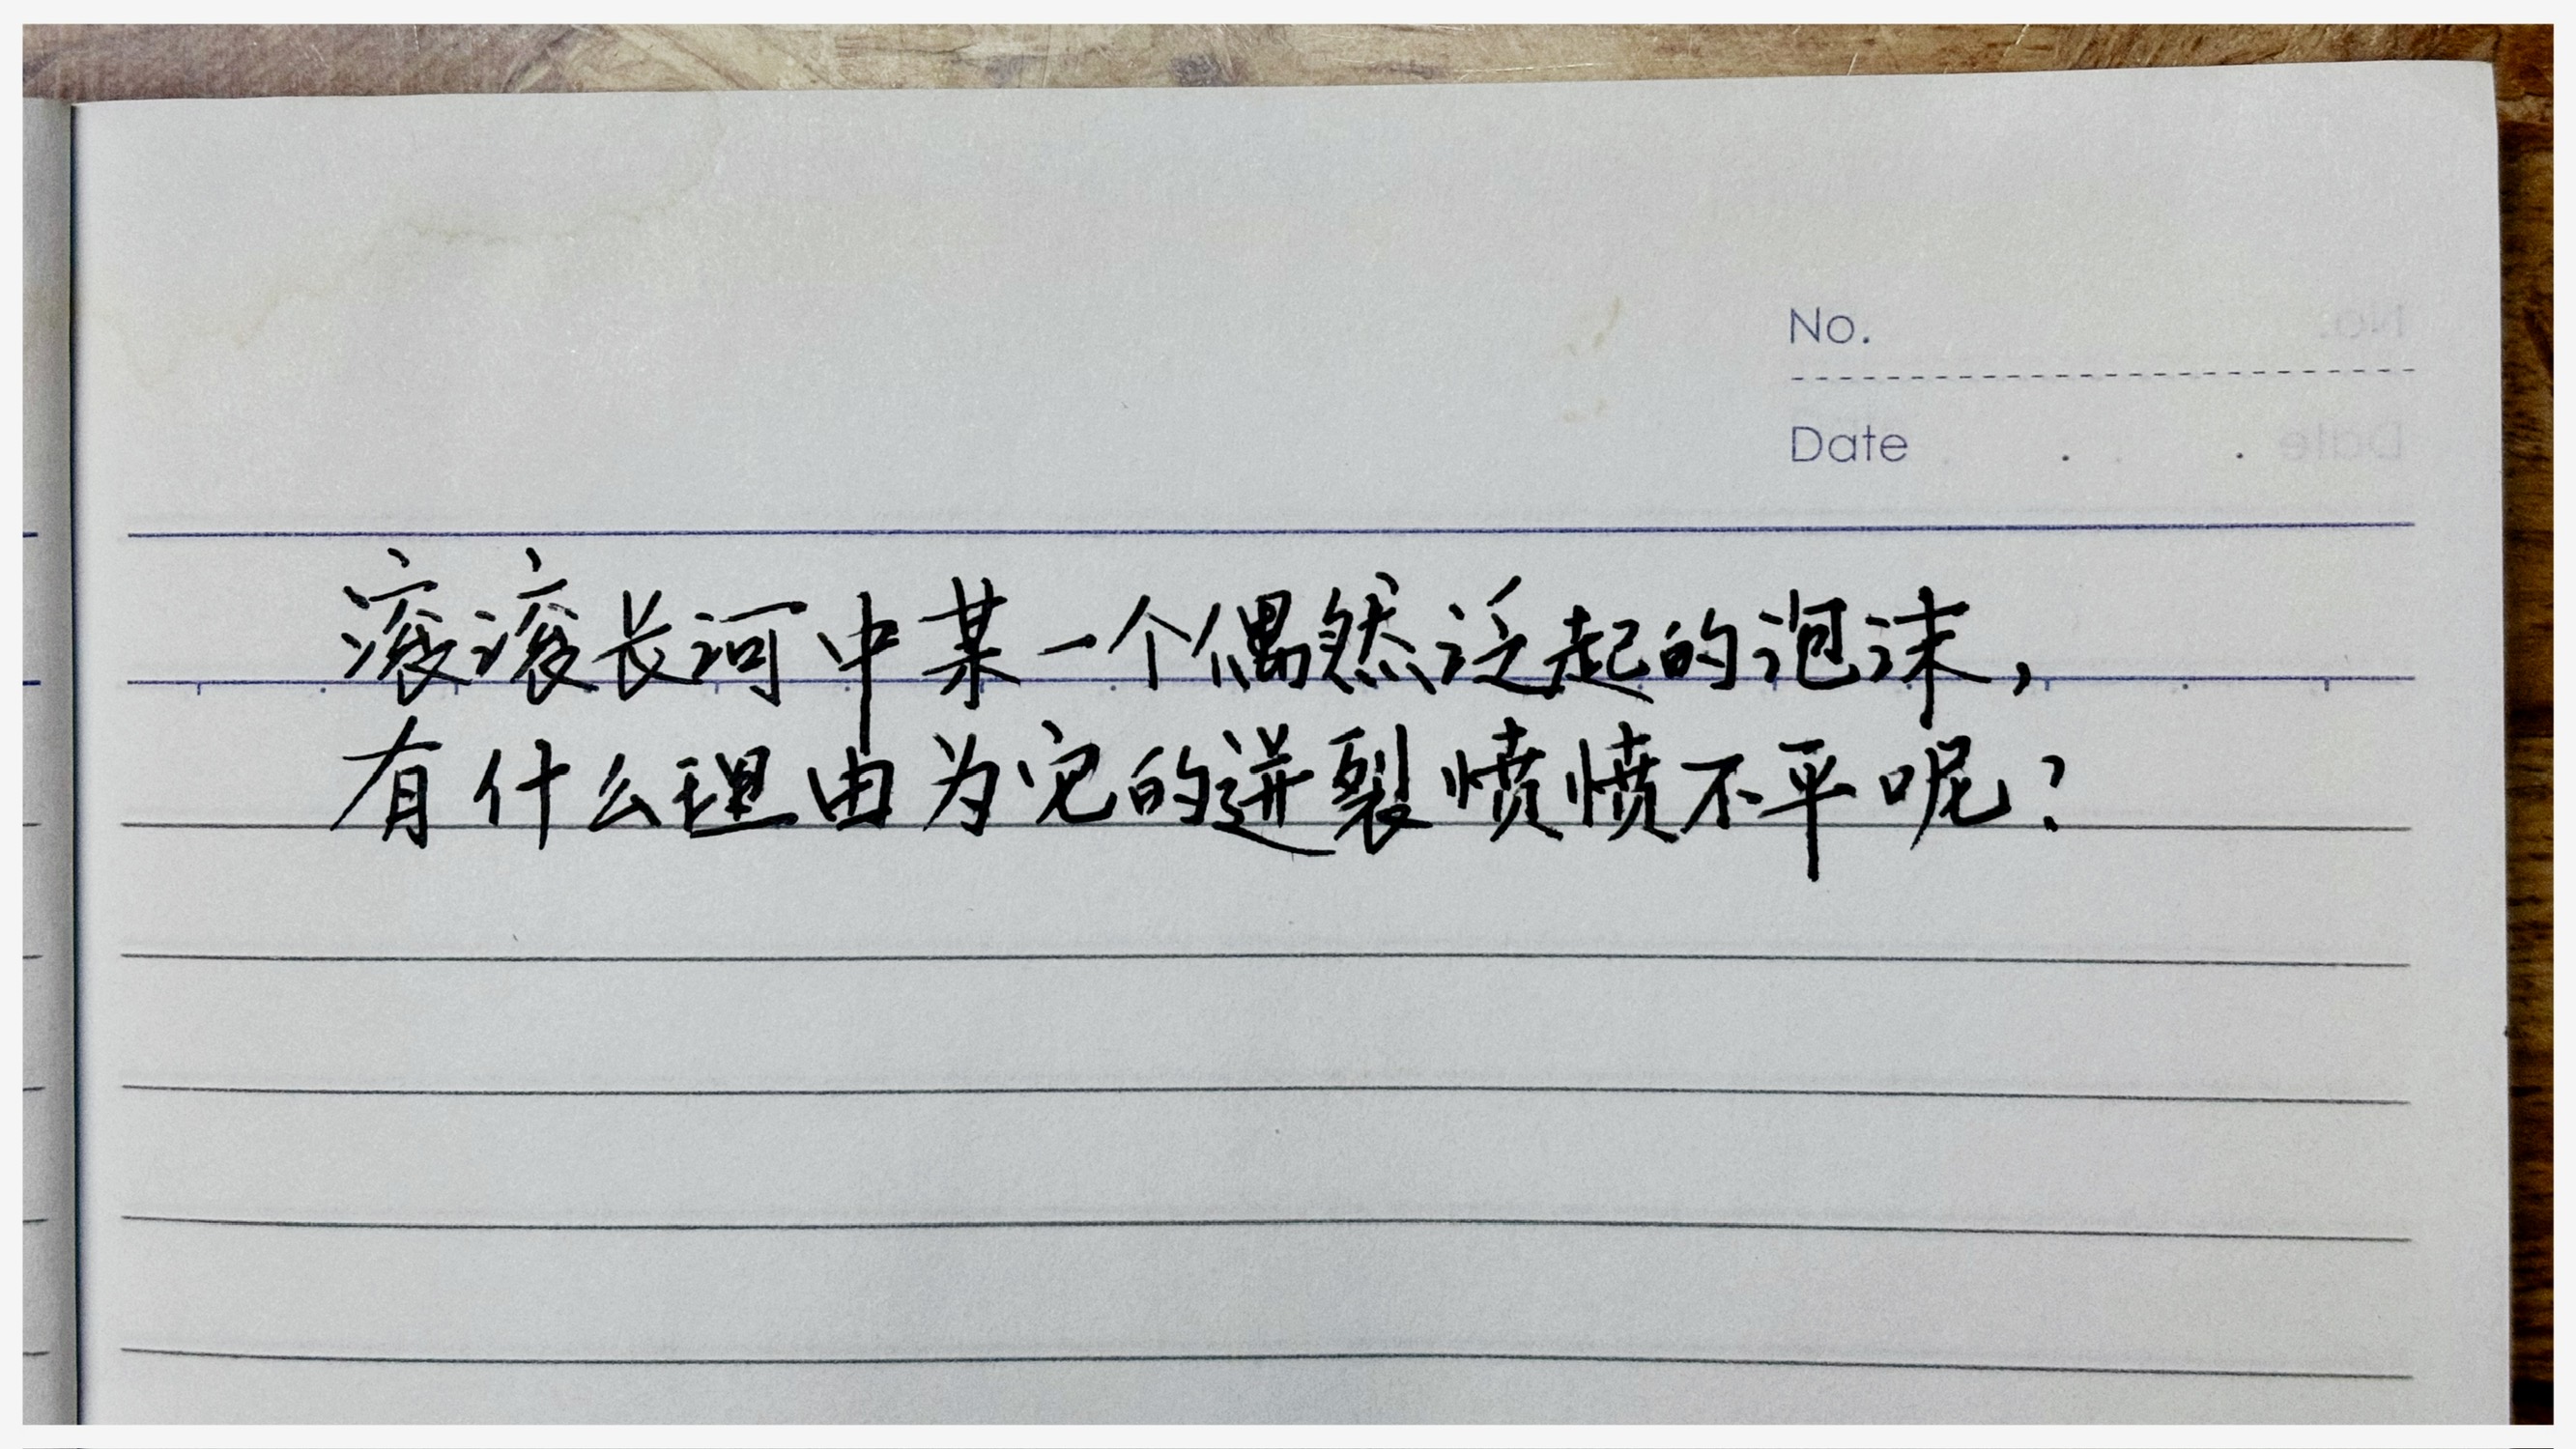 No.
Date . .
滚滚长河中某一个偶然泛起的泡沫，
有什么理由为它的迸裂愤愤不平呢？